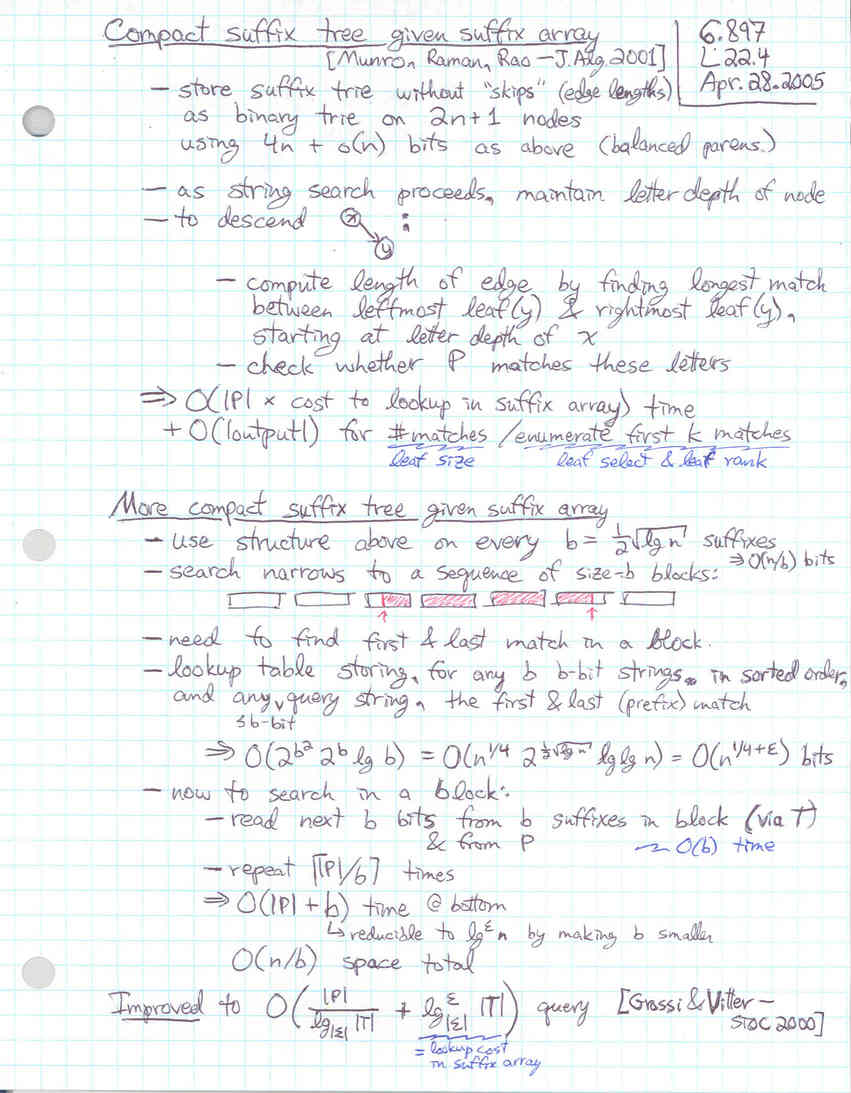 Compact suffix tree given suffix array
6.897
L22.4
Apr. 28. 2005
[Munro, Raman, Rao – J. Alg. 2001]
– store suffix trie without "skips" (edge lengths)
as binary trie on 2n+1 nodes
using 4n + o(n) bits as above (balanced parens.)
– as string search proceeds, maintain letter depth of node
– to descend x → y :
– compute length of edge by finding longest match
between leftmost leaf(y) & rightmost leaf(y),
starting at letter depth of x
– check whether P matches these letters
⇒ O(|P| × cost to lookup in suffix array) time
+ O(|output|) for #matches / enumerate first k matches
leaf size
leaf select & leaf rank
More compact suffix tree given suffix array
– use structure above on every b = ½√lg n suffixes
⇒ O(n/b) bits
– search narrows to a sequence of size-b blocks:
– need to find first & last match in a block.
– lookup table storing, for any b b-bit strings in sorted order,
and any query string, the first & last (prefix) match
≤b-bit
⇒ O(2^{b²} 2^b lg b) = O(n^{1/4} 2^{½√lg n} lg lg n) = O(n^{1/4+ε}) bits
– now to search in a block:
– read next b bits from b suffixes in block (via T)
& from P
~ O(b) time
– repeat ⌈|P|/b⌉ times
⇒ O(|P| + b) time @ bottom
↳ reducible to lg^ε n by making b smaller
O(n/b) space total
Improved to O(|P| / lg_{|Σ|} |T| + lg^ε_{|Σ|} |T|) query [Grossi & Vitter –
STOC 2000]
= lookup cost
in suffix array